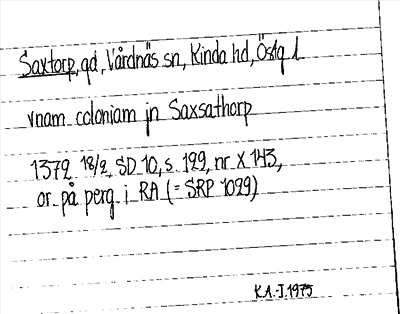 Saxtorp, gd, Vårdnäs sn, Kinda hd, Östg l
vnam coloniam jn Saxsathorp
1379 18/2 SD 10, s. 199, nr X 143,
or. på perg. i RA (= SRP 1099)
K.A.-J. 1975